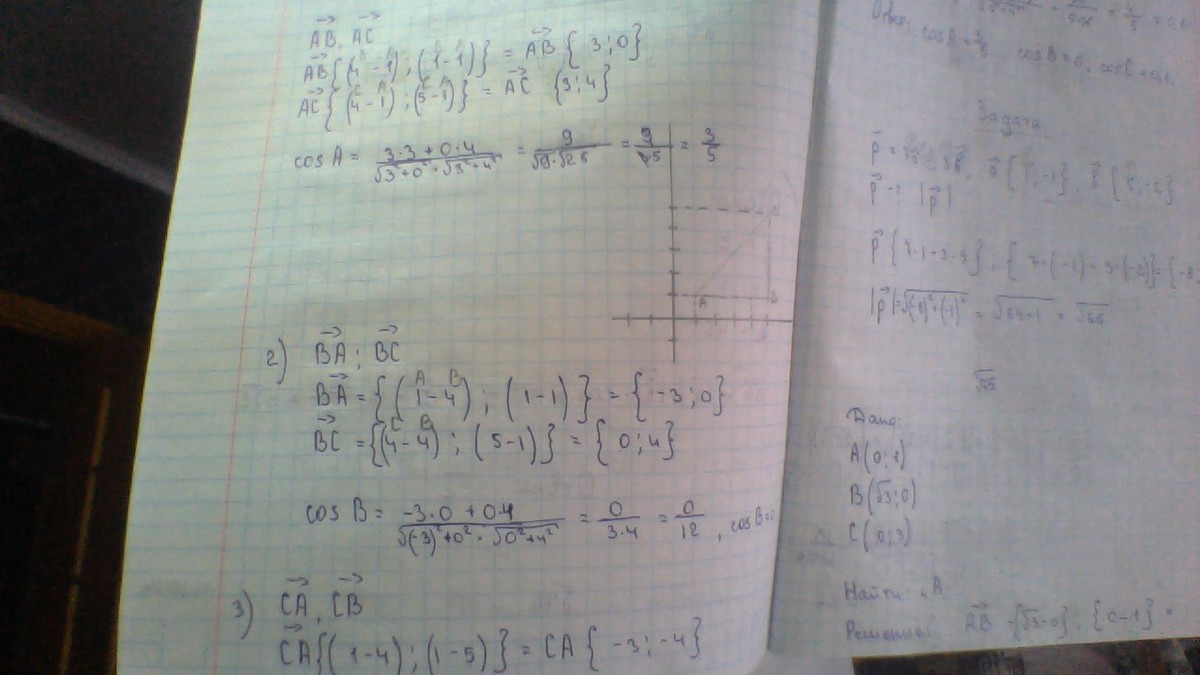 AB, AC
AB{(4-1);(1-1)} = AB{3;0}
AC{(4-1);(5-1)} = AC {3;4}
cos A = (3·3+0·4)/(√3²+0² · √3²+4²) = 9/(√9·√25) = 9/15 = 3/5
A B
2) BA; BC
A B
BA = {(1-4); (1-1)} = {-3;0}
C B
BC = {(4-4); (5-1)} = {0;4}
cos B = (-3·0+0·4)/(√(-3)²+0² · √0²+4²) = 0/(3·4) = 0/12, cos B=0
3) CA, CB
CA{(1-4);(1-5)} = CA{-3;-4}
cos B=0,
Задача
p
p-? |p|
p {7·1-3·5}; {7·(-1)-3·(-2)}=
|p|=√(-8)²+(-1)² = √64+1 = √65
√65
Дано:
A(0;1)
B(√3;0)
C(0;3)
Найти: A
Решение: AB {√3-0}; {0-1} =